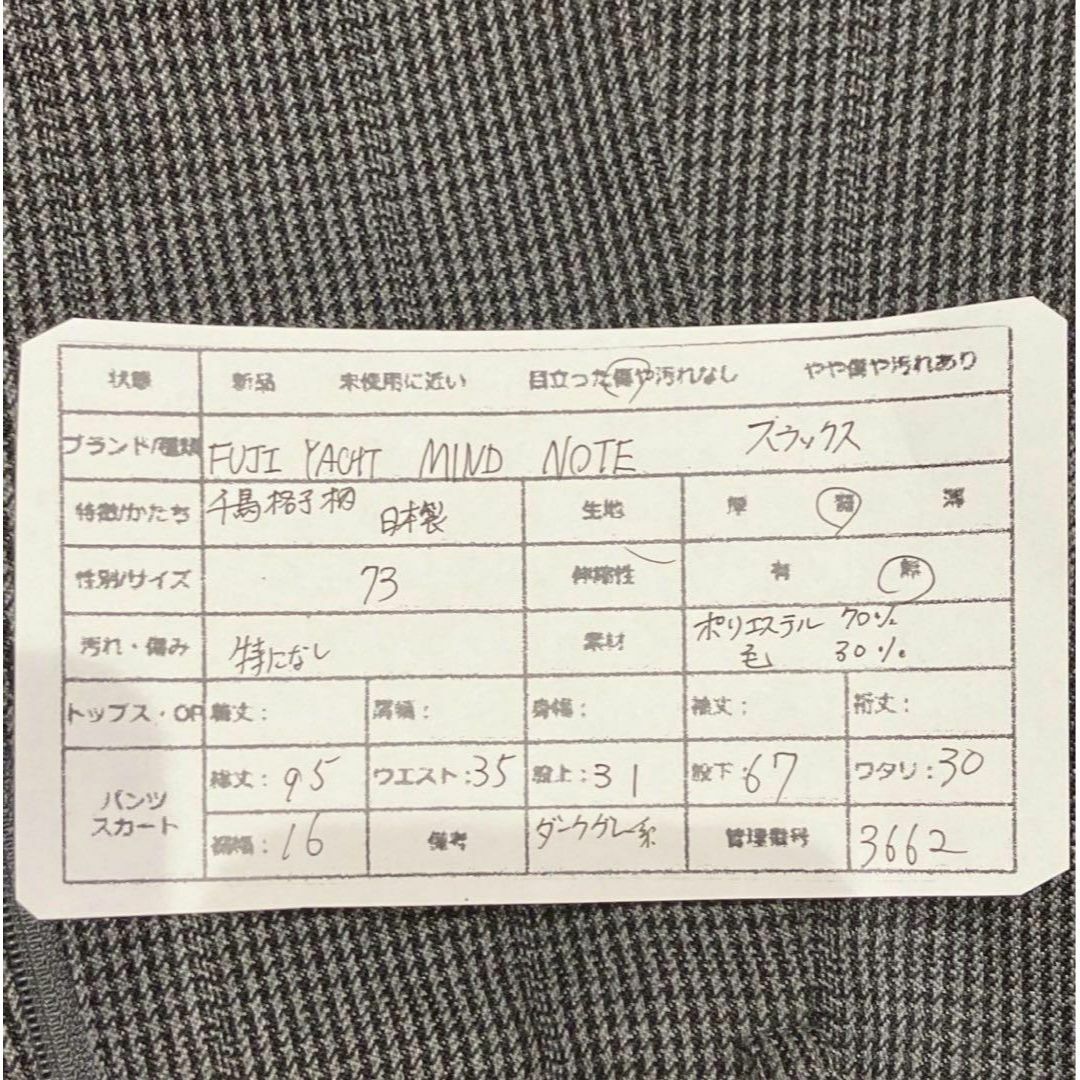 状態 新品 未使用に近い 目立った傷や汚れなし やや傷や汚れあり
ブランド/種類 FUJI YACHT MIND NOTE スラックス
特徴/かたち 千鳥格子柄 日本製 生地 厚 普 薄
性別/サイズ 73 伸縮性 有 無
汚れ・傷み 特になし 素材 ポリエステル 70%
毛 30%
トップス・OP 着丈: 肩幅: 身幅: 袖丈: 裄丈:
パンツ スカート 総丈:95 ウエスト:35 股上:31 股下:67 ワタリ:30
裾幅:16 備考 ダークグレー系 管理番号 3662